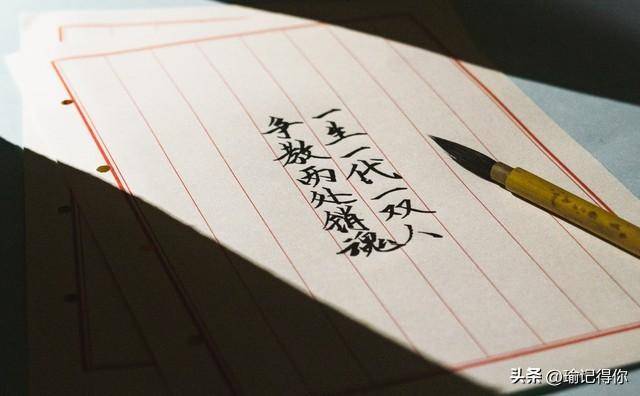 一生一代一双人
争教两处销魂
头条 @瑜记得你